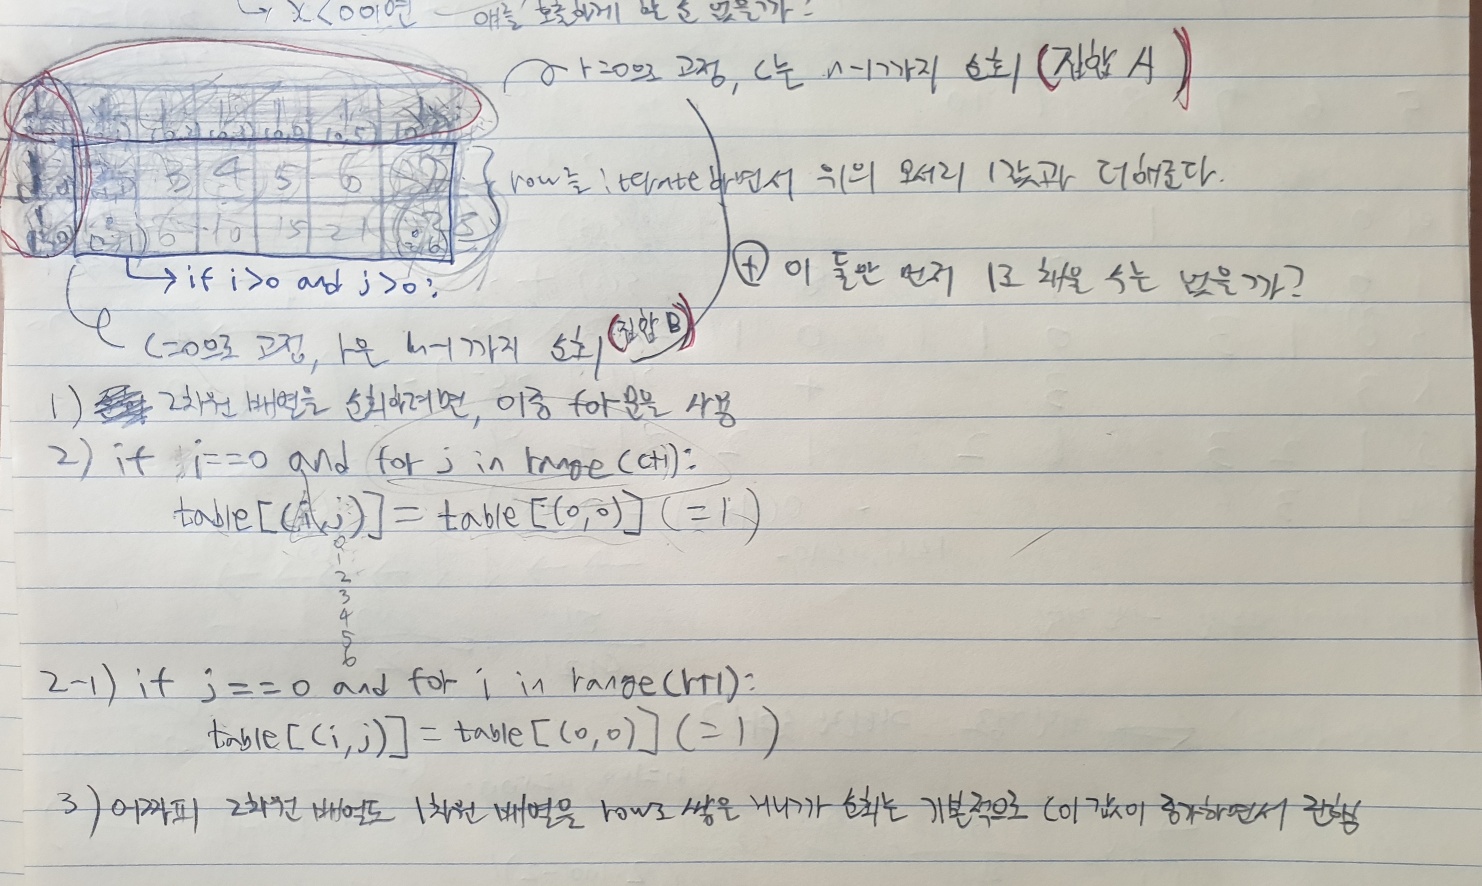 ↳ x<0이면
r=0으로 고정, c는 n-1까지 순회 (집합 A)
1 1 1 1 1 1 1
1 3 4 5 6 7
1 6 10 15 21
row를 iterate하면서 위의 모서리 1값과 더해준다.
→ if i>0 and j>0:
⊕ 이 둘만 먼저 1로 채울 수는 없을까?
c=0으로 고정, r은 n-1까지 순회 (집합 B)
1) 2차원 배열을 순회하려면, 이중 for문을 사용
2) if i==0 and for j in range(c+1):
table[(i,j)] = table[(0,0)] (=1)
0
1
2
3
4
5
6
2-1) if j==0 and for i in range(r+1):
table[(i,j)] = table[(0,0)] (=1)
3) 어짜피 2차원 배열도 1차원 배열을 row로 쌓은 거니까 순회는 기본적으로 c의 값이 증가하면서 진행